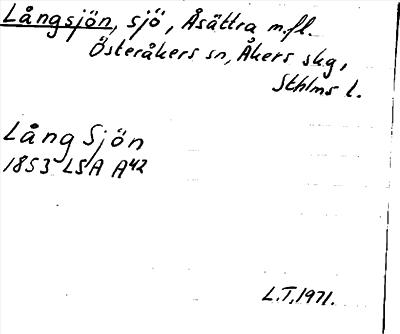 Långsjön, sjö, Åsättra m.fl.
Österåkers sn, Åkers skg,
Sthlms l.
Lång Sjön
1853 LSA A42
L.T. 1971.